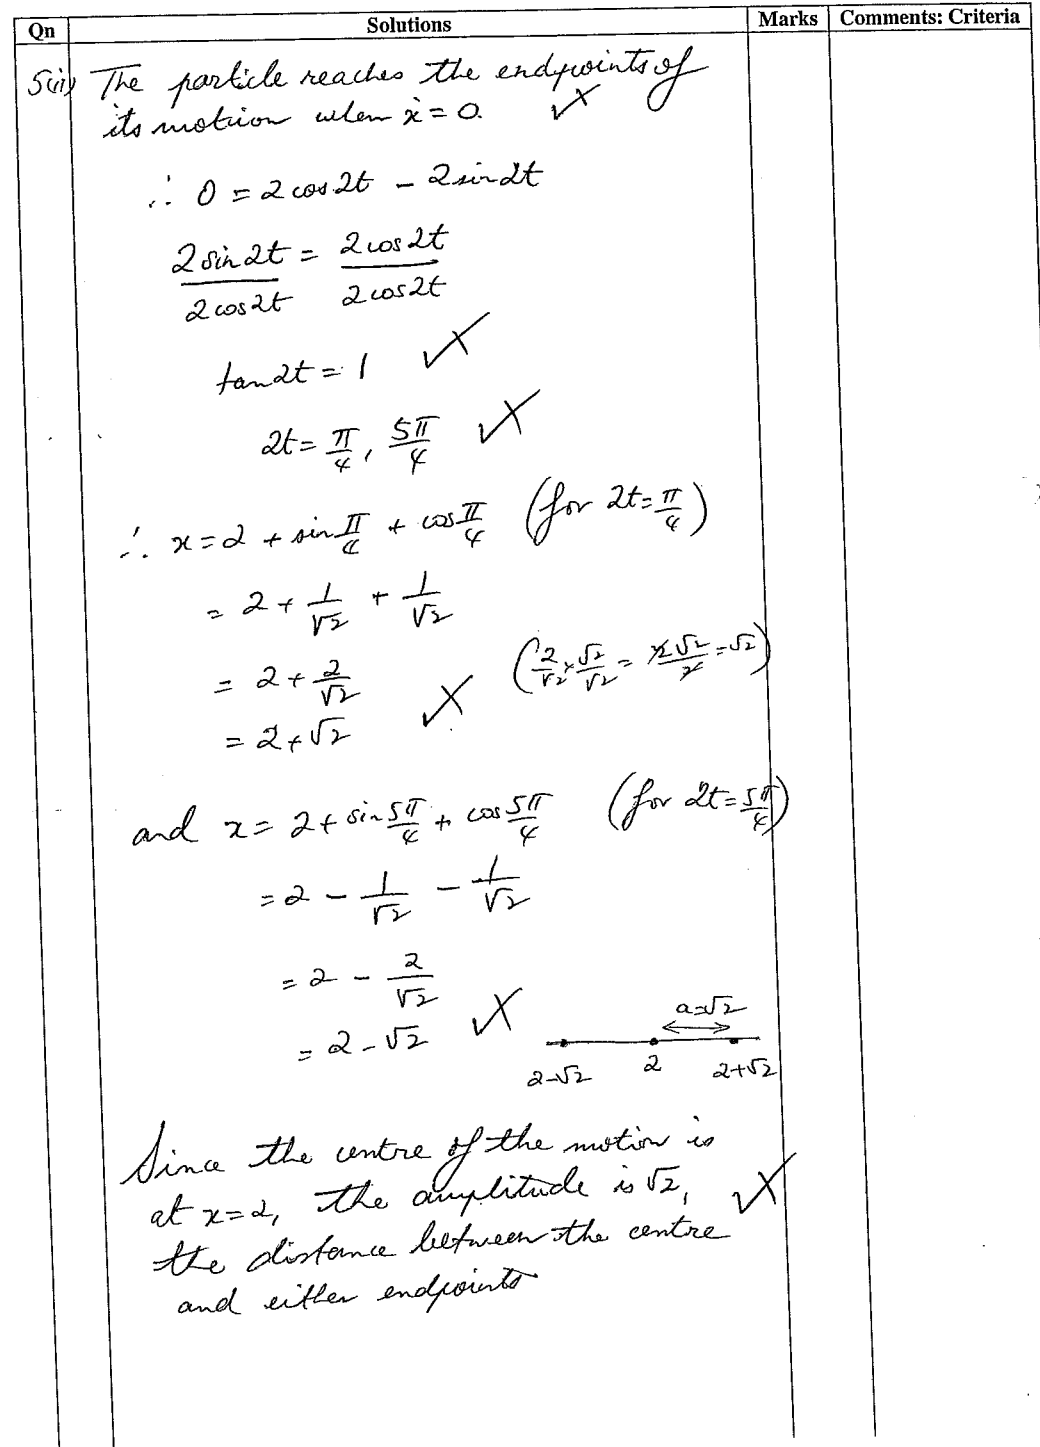 Qn Solutions Marks Comments: Criteria
5(ii) The particle reaches the endpoints of
its motion when ẋ = 0.
∴ 0 = 2cos2t - 2sin2t
2sin2t/2cos2t = 2cos2t/2cos2t
tan2t = 1
2t = π/4, 5π/4
∴ x = 2 + sin π/4 + cos π/4 (for 2t = π/4)
= 2 + 1/√2 + 1/√2
= 2 + 2/√2 (2/√2 × √2/√2 = 2√2/2 = √2)
= 2 + √2
and x = 2 + sin 5π/4 + cos 5π/4 (for 2t = 5π/4)
= 2 - 1/√2 - 1/√2
= 2 - 2/√2
= 2 - √2
a=√2
2-√2 2 2+√2
Since the centre of the motion is
at x=2, the amplitude is √2,
the distance between the centre
and either endpoints